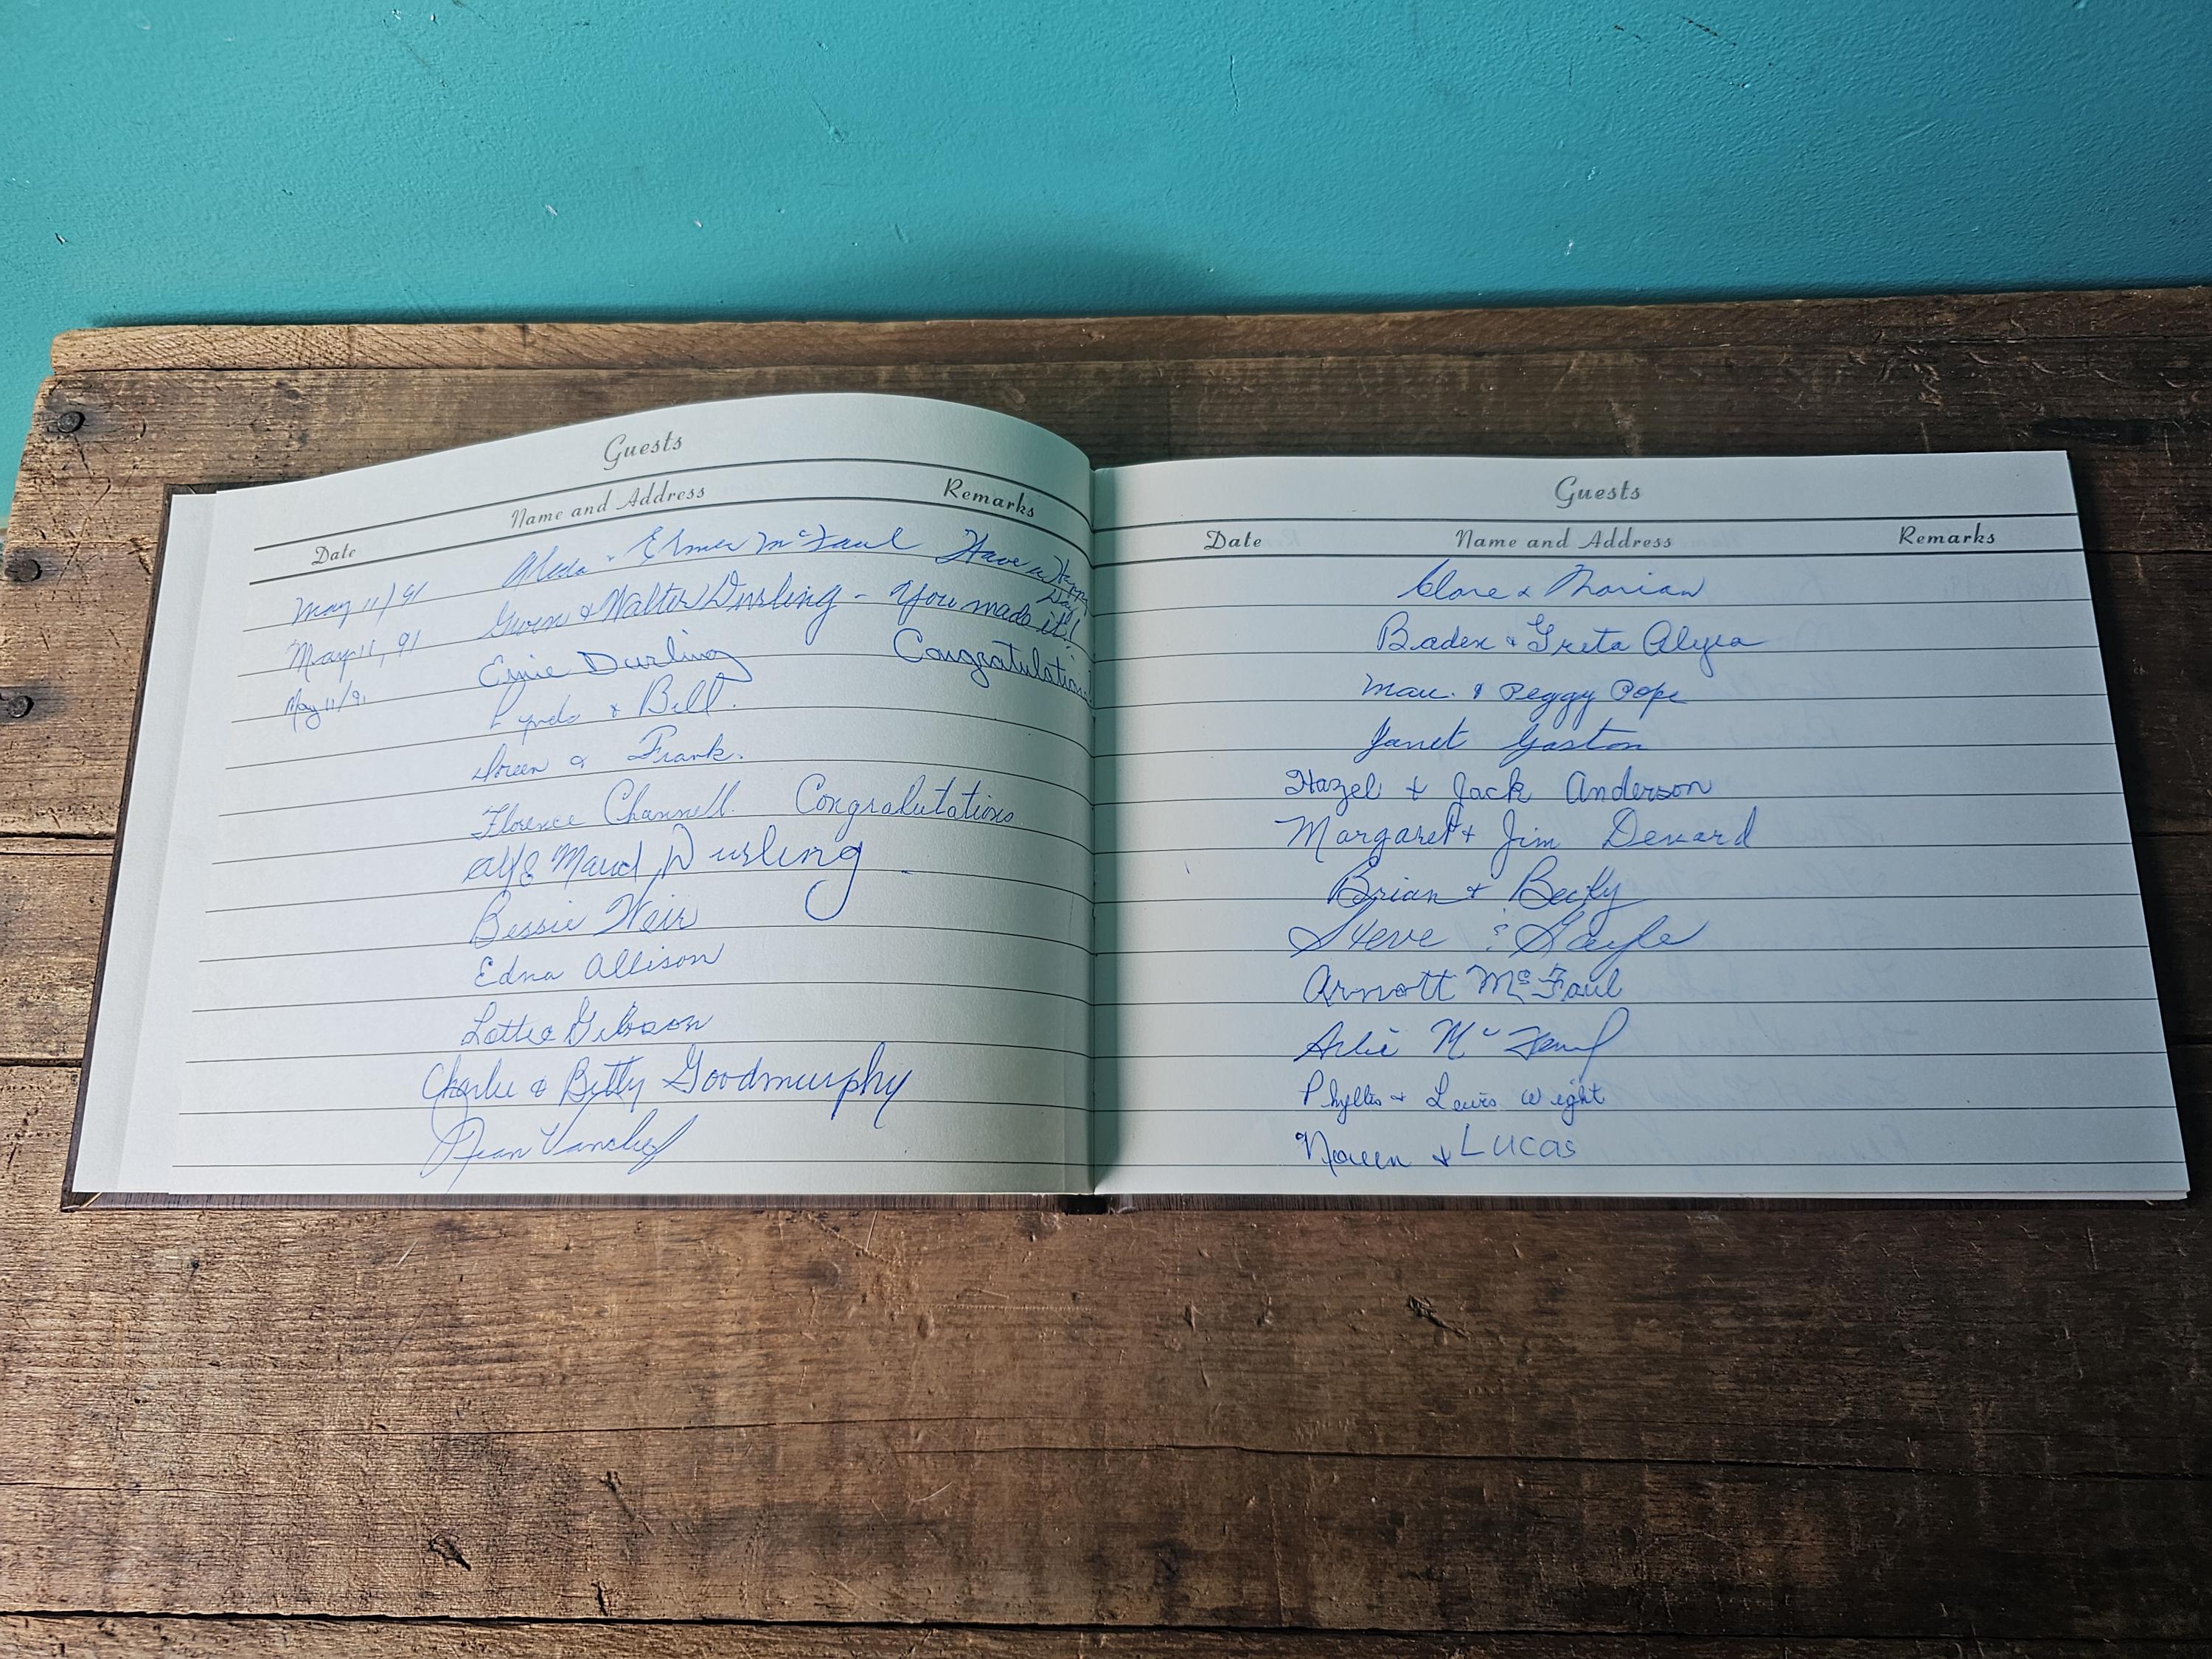 Guests
Date Name and Address Remarks
May 11/91 & Elmer McFaul Have a Happy Day
May 11, 91 Gwen & Walter Durling - You made it!
May 11/91 Ernie Durling Congratulations
Lynda & Bill.
Doreen & Frank.
Florence Channell. Congratulations
Alf & Maud Durling
Bessie Weir
Edna Allison
Lottie Gibson
Charlie & Betty Goodmurphy
Jean Vanclief
Guests
Date Name and Address Remarks
Clare & Marian
Baden & Greta Alyea
& Peggy Pope
Janet Gaston
Hazel + Jack Anderson
Margaret + Jim Denard
Brian + Becky
Steve & Gayle
Arnott McFaul
Arlie McFaul
Phyllis + Lewis Wight
Noreen & Lucas